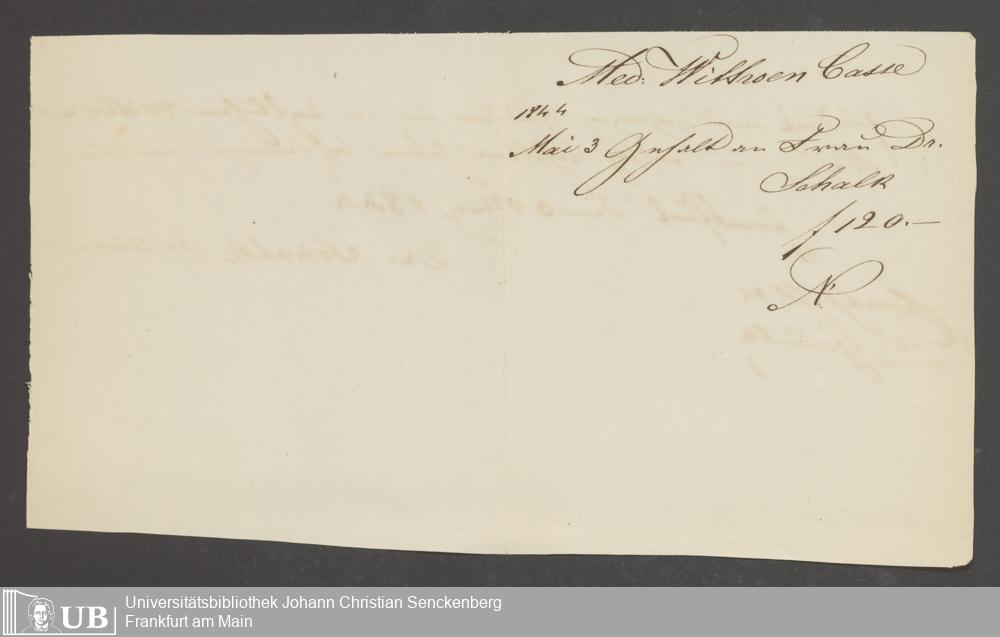 Med: Withoen Casse
1844
Mai 3 Gehalt an Frau Dr.
Schalk
f 120.—
N.
UB
Universitätsbibliothek Johann Christian Senckenberg
Frankfurt am Main